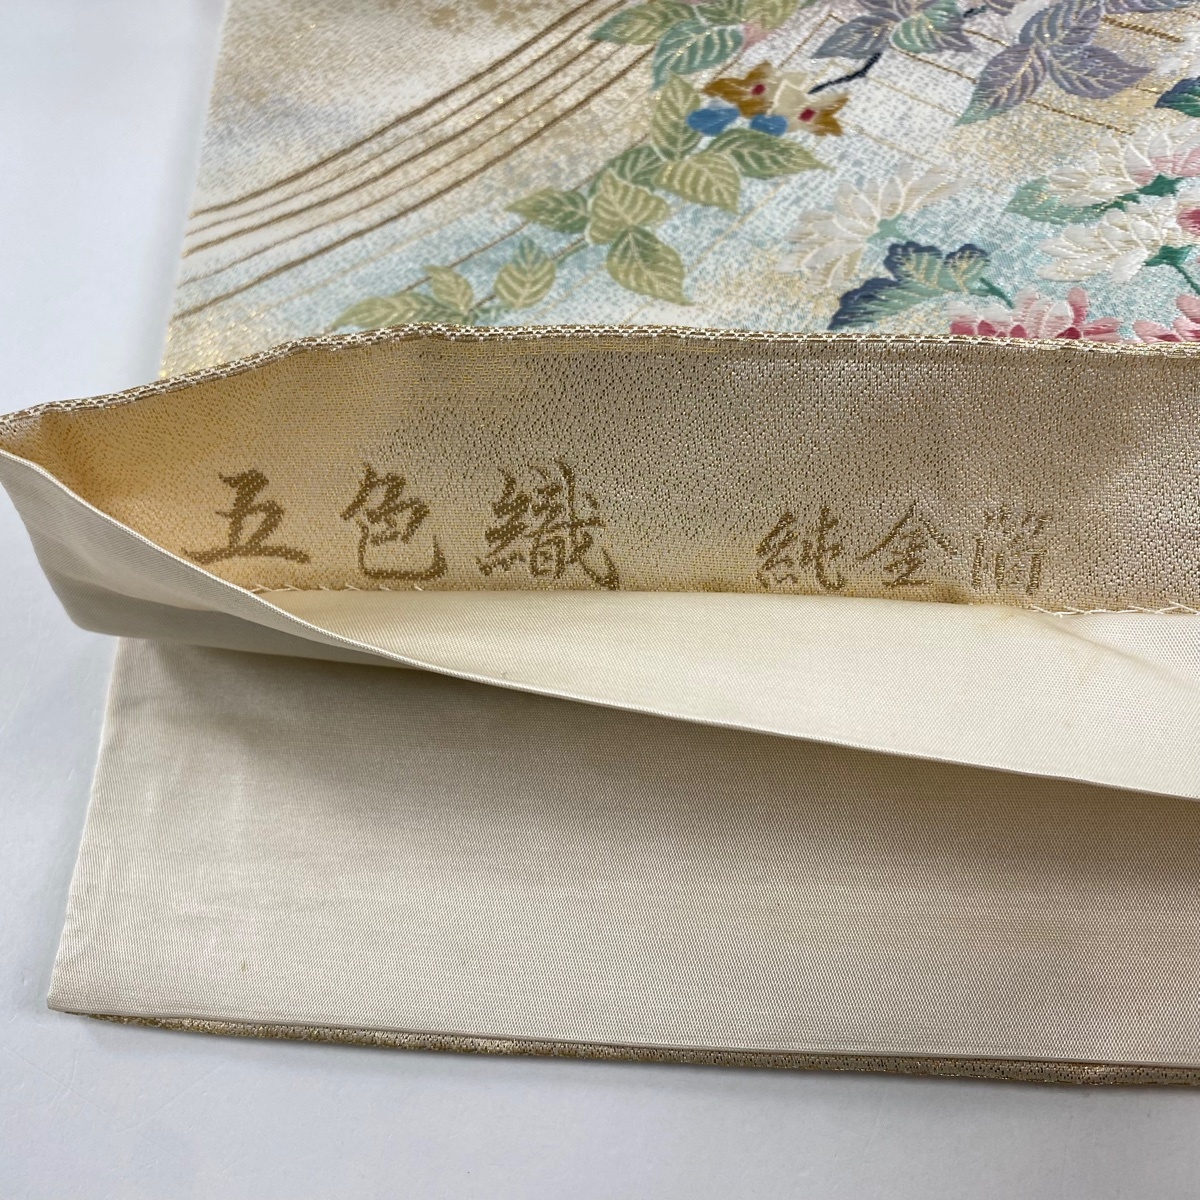 五色織 純金箔